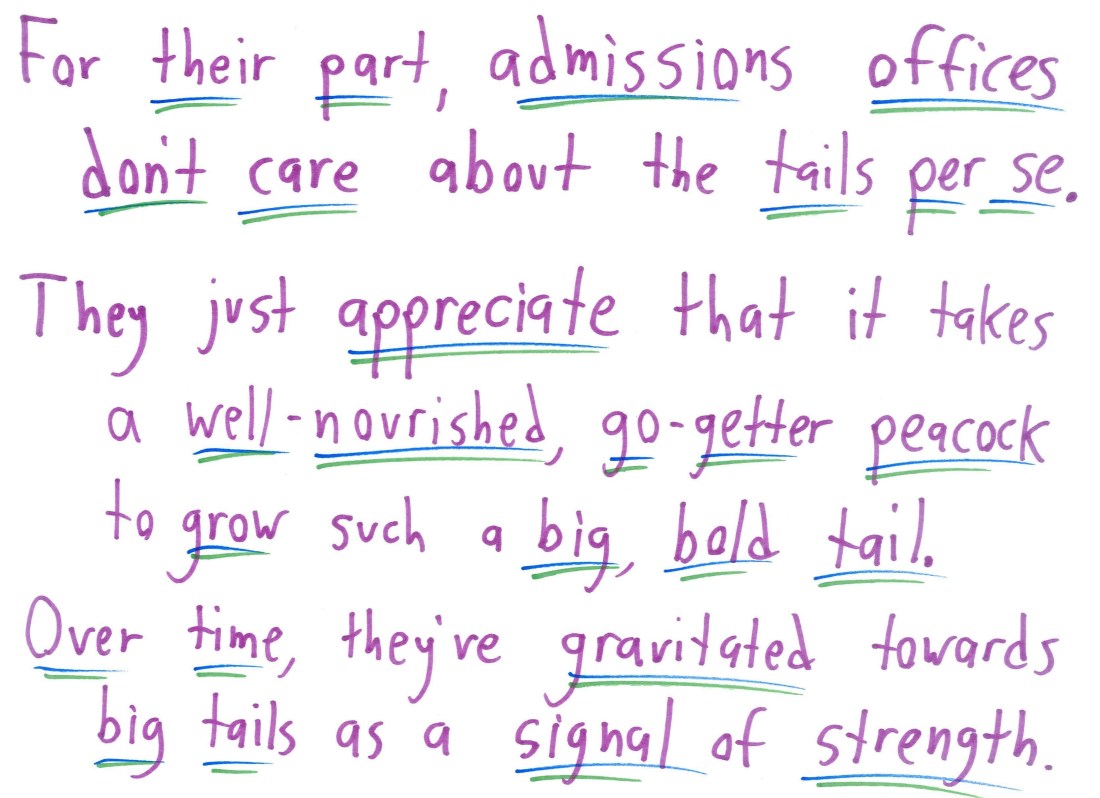 For their part, admissions offices
don't care about the tails per se.
They just appreciate that it takes
a well-nourished, go-getter peacock
to grow such a big, bold tail.
Over time, they've gravitated towards
big tails as a signal of strength.